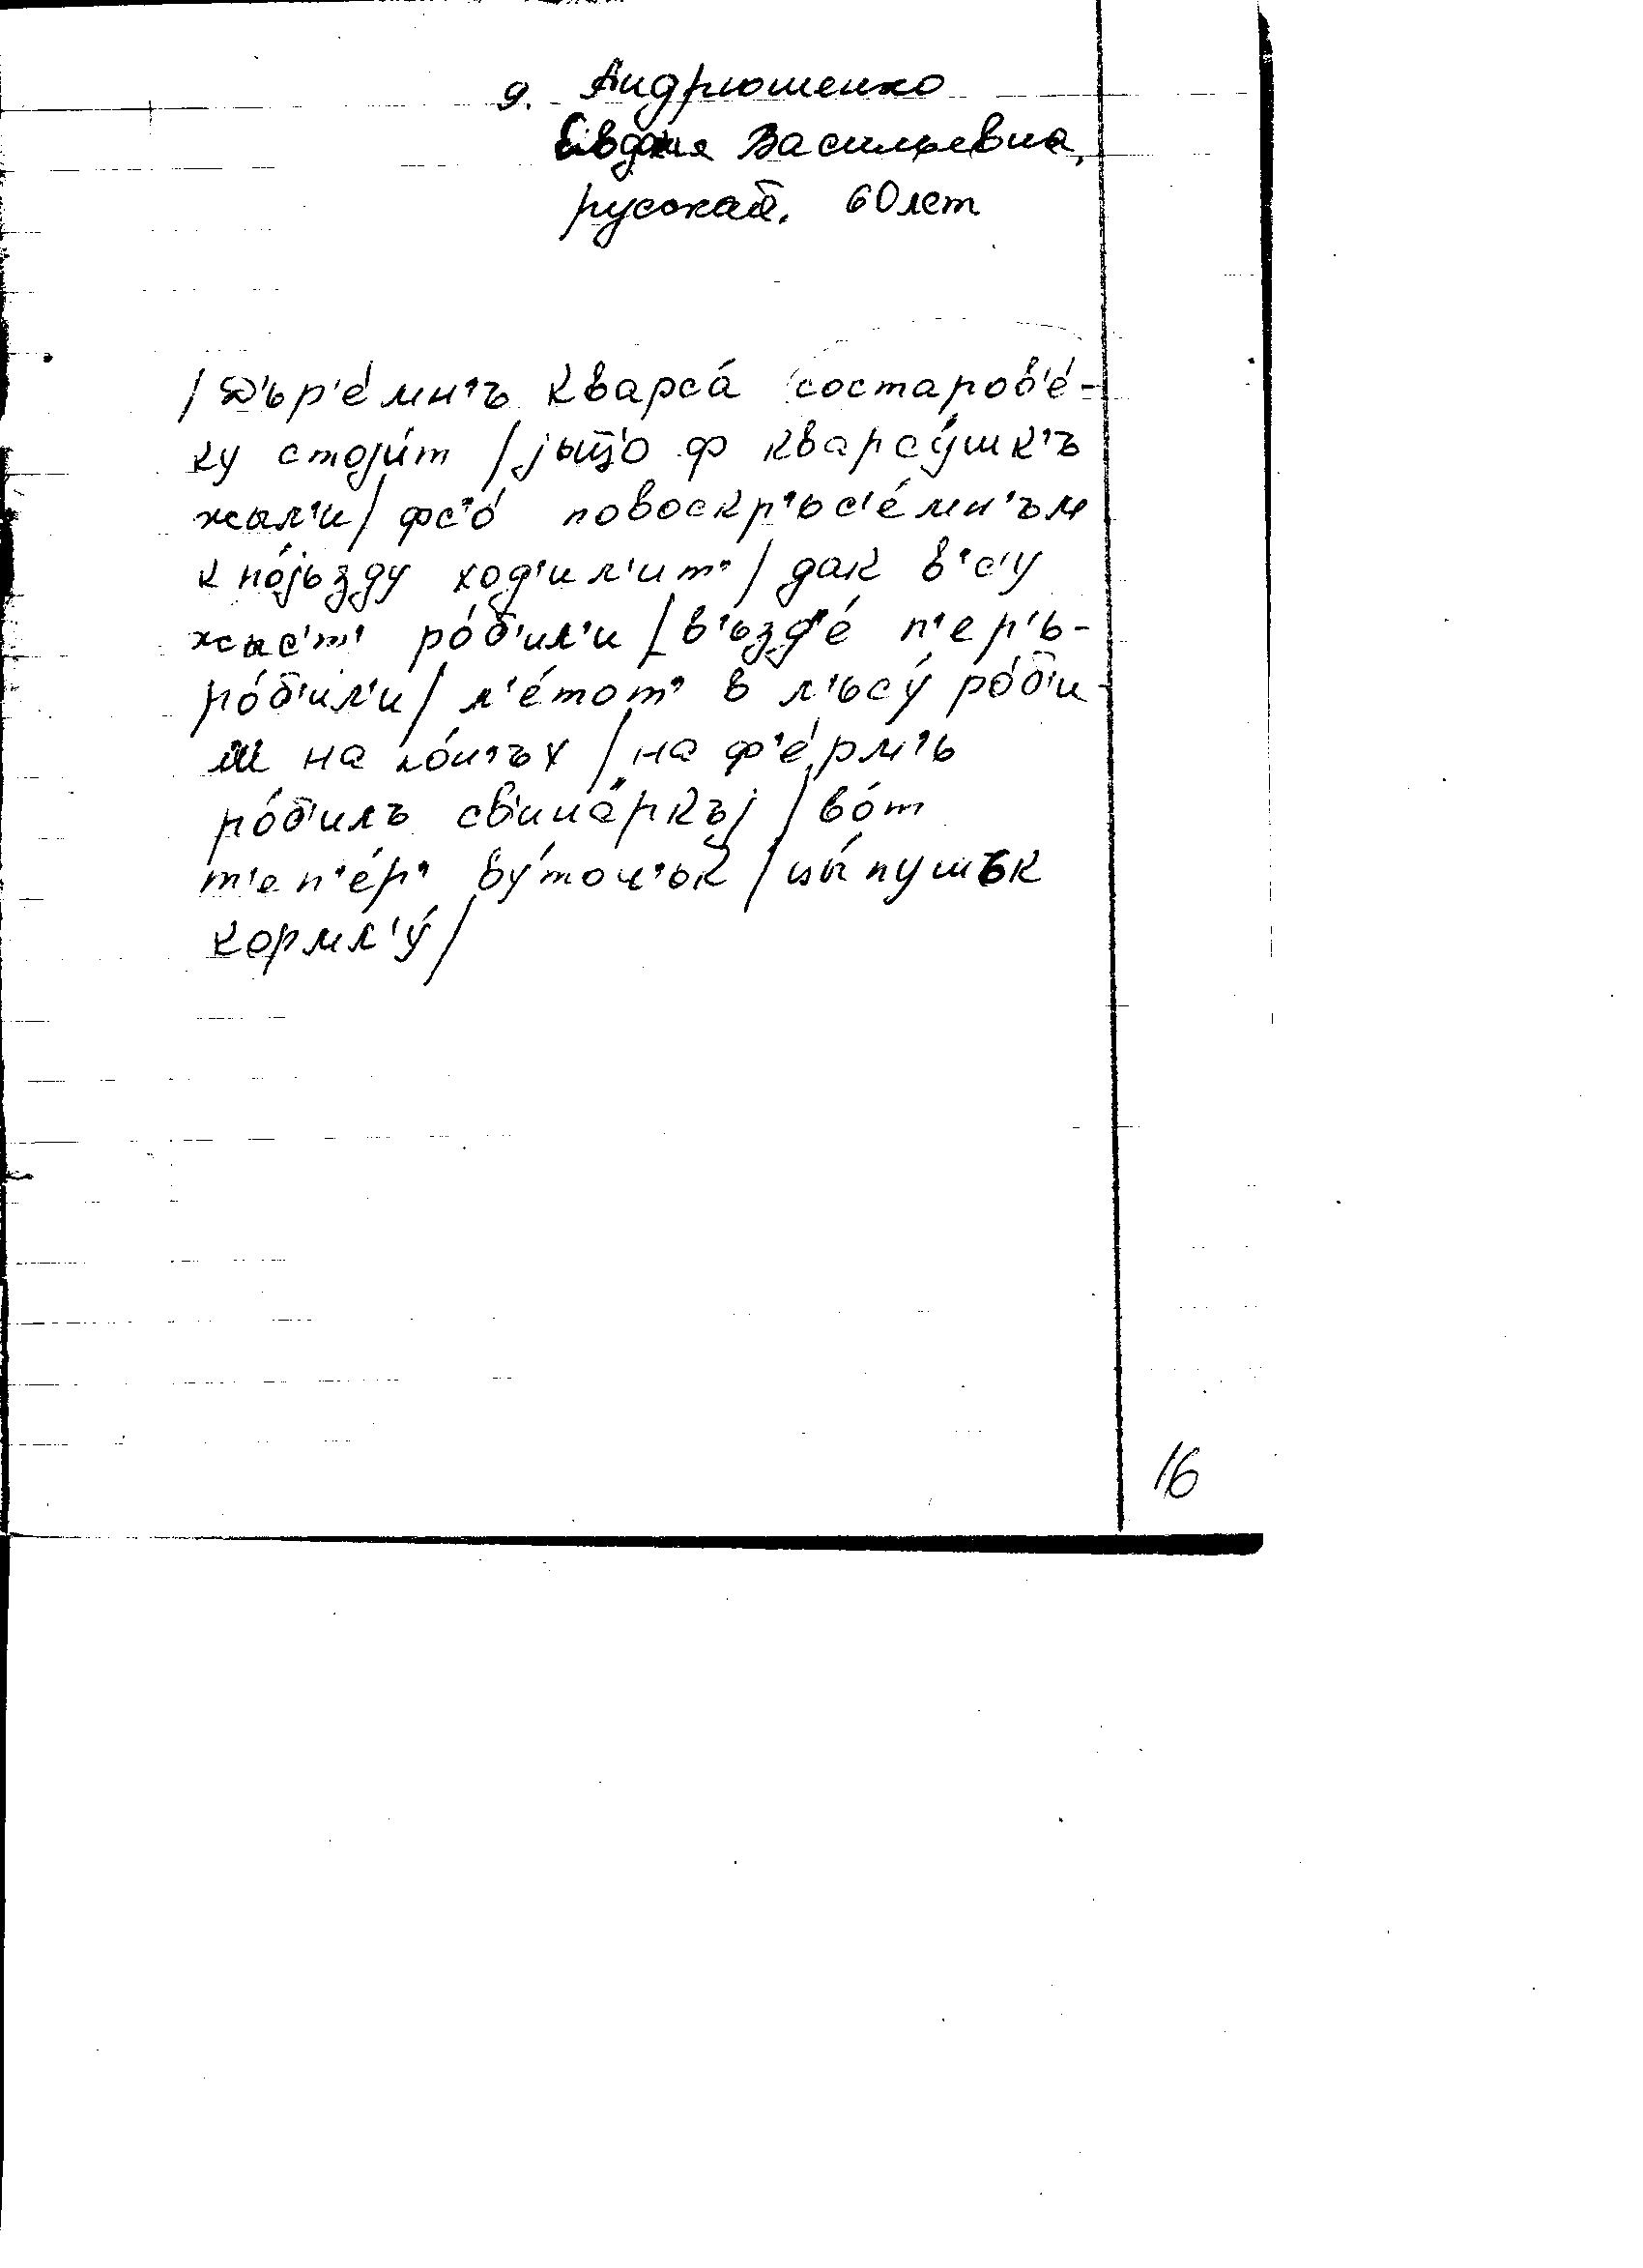 9. Андрюшенко
Евдокия Васильевна,
русская. 60 лет
/ Д'ър'е́мн'ъ Кварса́ состаров'е́-
ку стоjи́т / jьщо ф кварсу́шк'ъ
жыл'и / фс'о́ повоскр'ьс'е́мн'ъм
к по́jьзду ход'ил'ит' / дак в'с'у
жыс'т' ро́б'ил'и / в'ьзд'е́ п'ер'ь-
ро́б'ил'и / л'е́тот' в л'ьсу́ ро́б'и-
ли на ко́н'ъх / на ф'е́рм'ь
ро́б'илъ св'ина́ркъj / во́т
т'еп'е́р' ву́точ'ьк / цы́пушък
кормл'у́ /
16